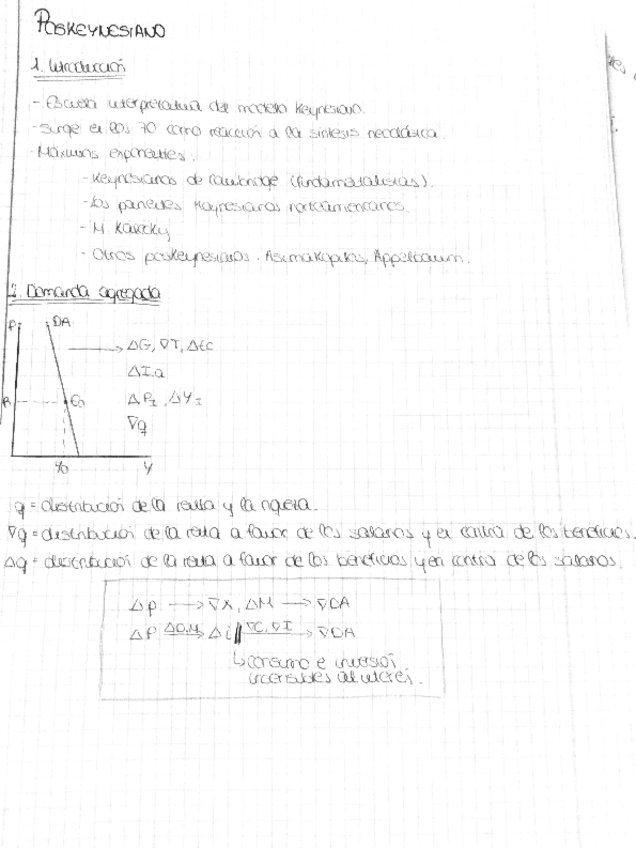 POSKEYNESIANO
1. Introducción
- Escuela interpretativa del modelo Keynesiano.
- Surge en los 70 como reacción a la síntesis neoclásica.
- Máximos exponentes:
- Keynesianos de Cambridge (fundamentalistas).
- los Keynesianos norteamericanos.
- M Kalecky
- Otros poskeynesianos. Asimakopulos, Appelbaum.
2. Demanda agregada
P DA
→ ΔG, ∇T, Δtc
ΔI.a
P0 E0 ΔP_I, ΔY_I
∇q
Y0 Y
q = distribución de la renta y la riqueza.
∇q = distribución de la renta a favor de los salarios y en contra de los beneficios.
Δq = distribución de la renta a favor de los beneficios y en contra de los salarios.
Δp → ∇X, ΔM → ∇DA
ΔP ΔD.M → Δi ∇C, ∇I → ∇DA
↳ consumo e inversión
insensibles al interés.